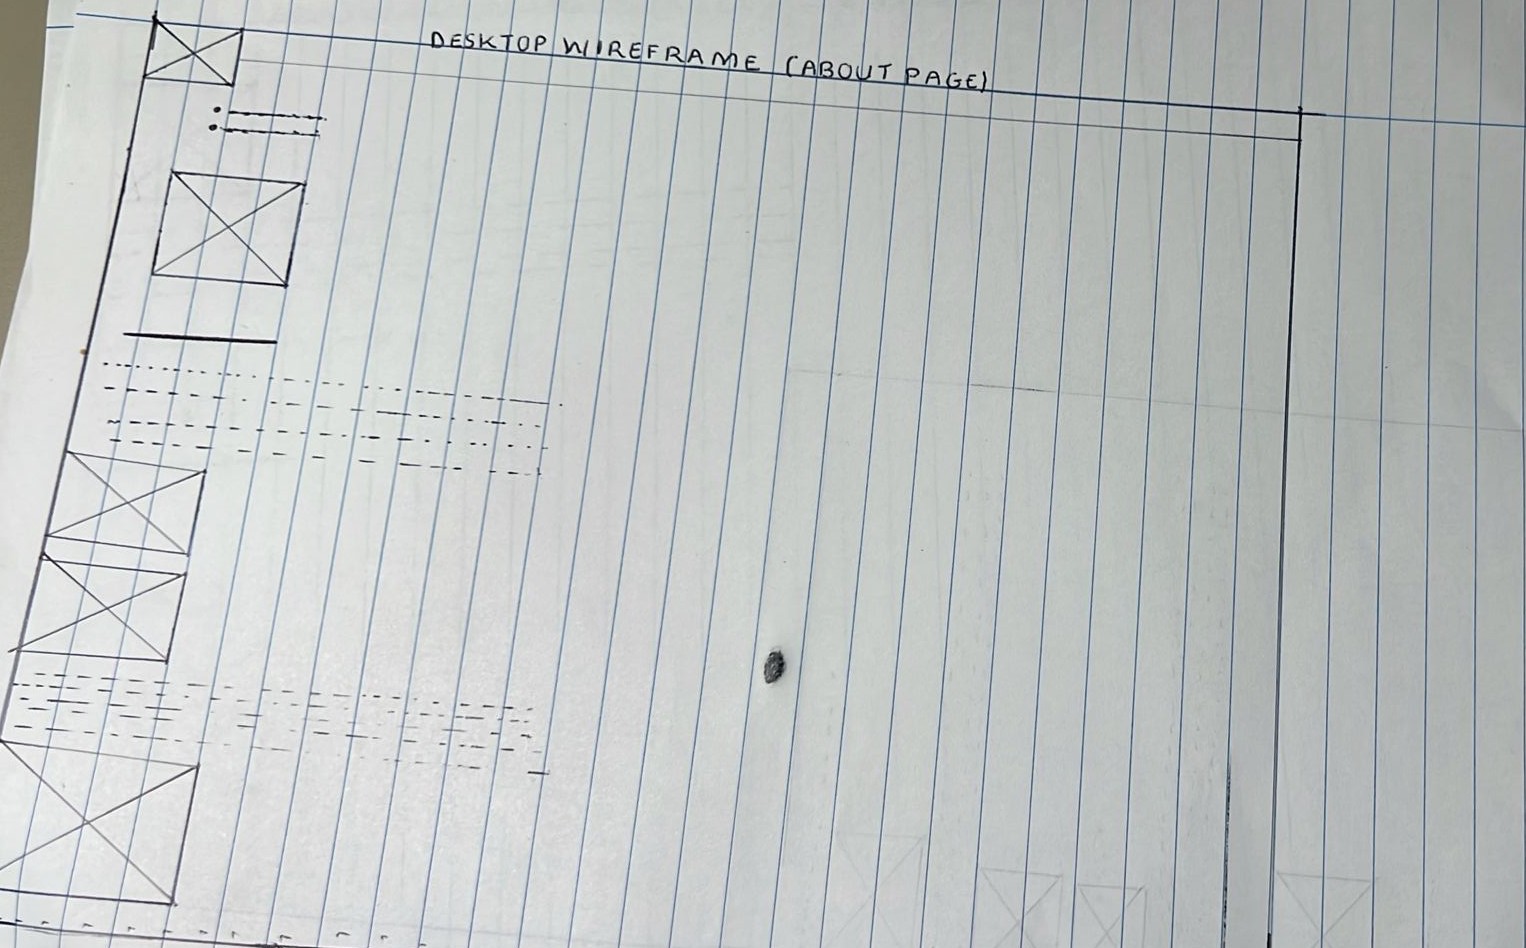 DESKTOP WIREFRAME (ABOUT PAGE)